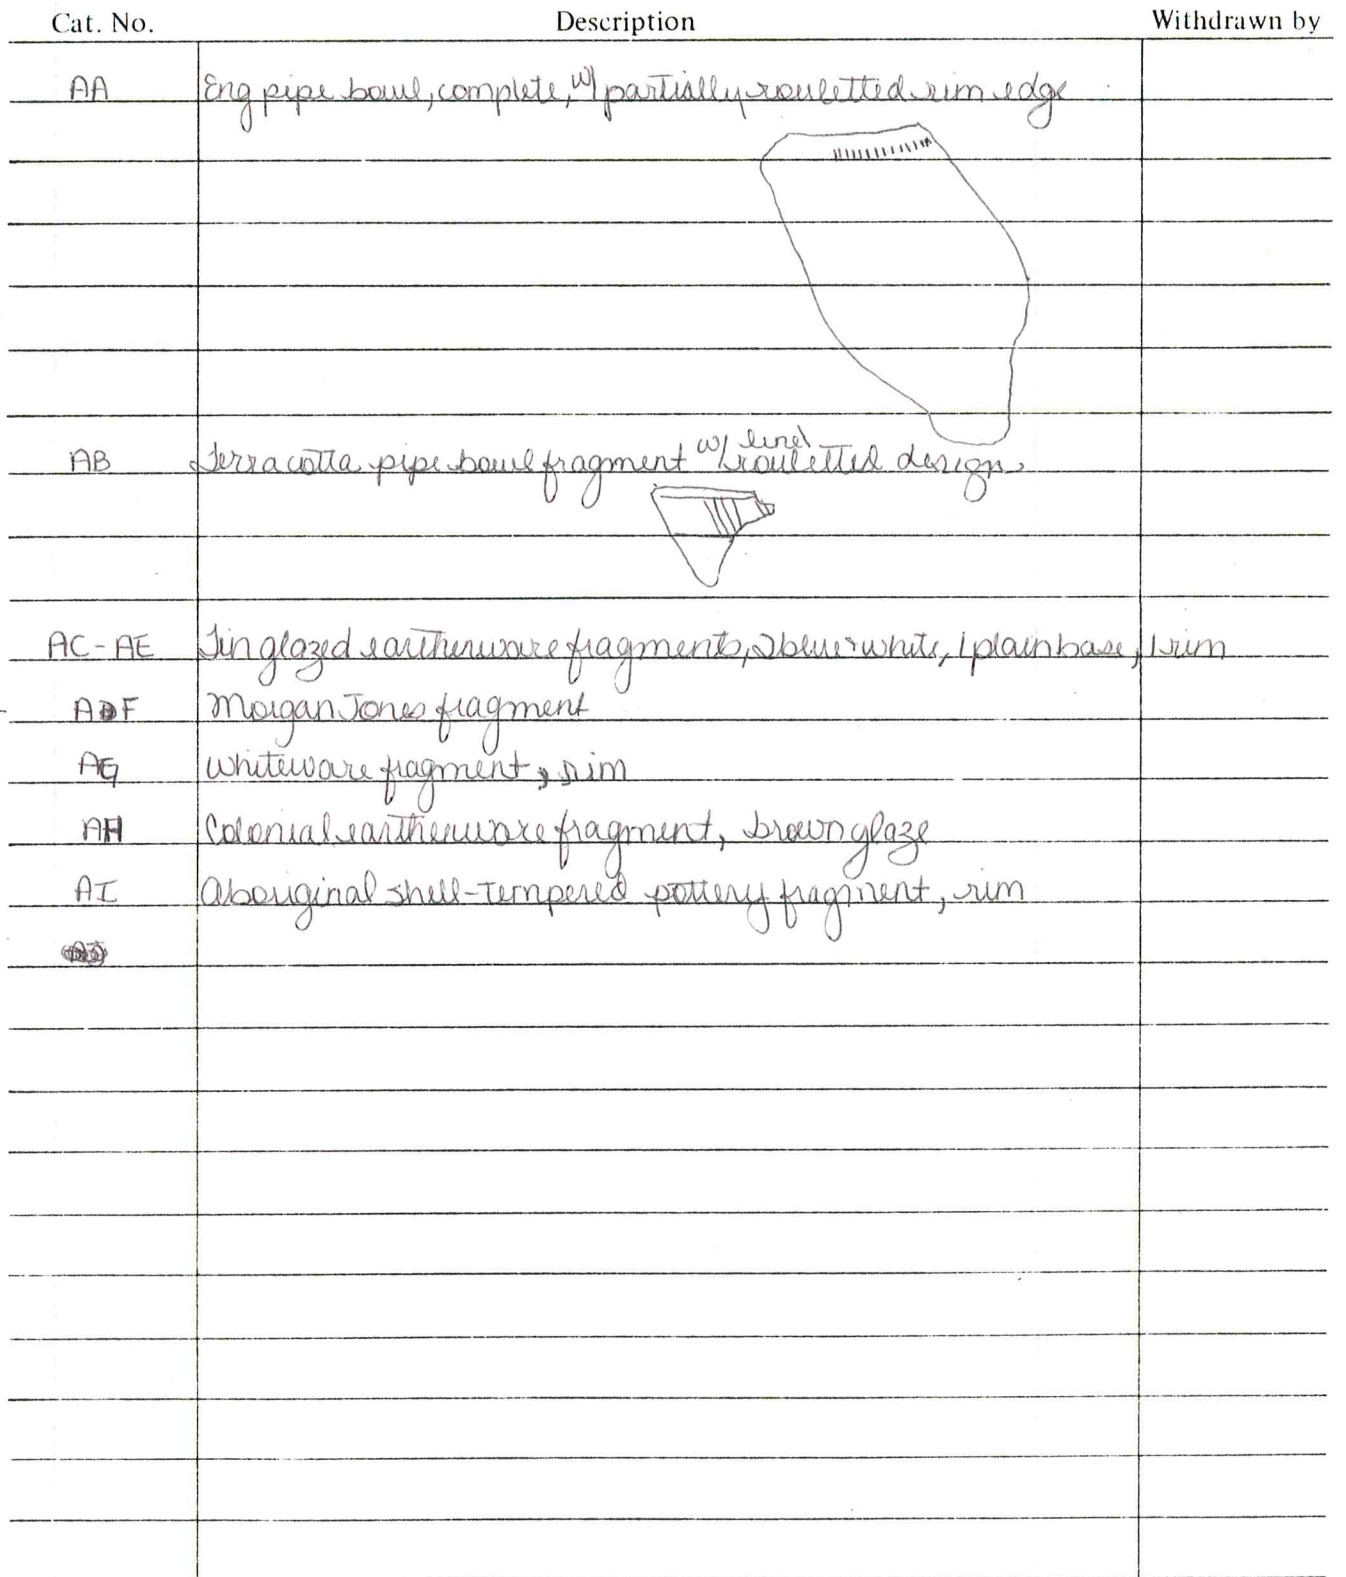 Cat. No. Description Withdrawn by
AA Eng pipe bowl, complete, w/ partially rouletted rim edge
AB Terracotta pipe bowl fragment w/ lined rouletted design.
AC-AE Tin glazed eartherware fragments, 2 blue + white, 1 plain base, 1 rim
AF Morgan Jones fragment
AG whiteware fragment, rim
AH Colonial eartherware fragment, brown glaze
AI aboriginal shell-tempered pottery fragment, rim